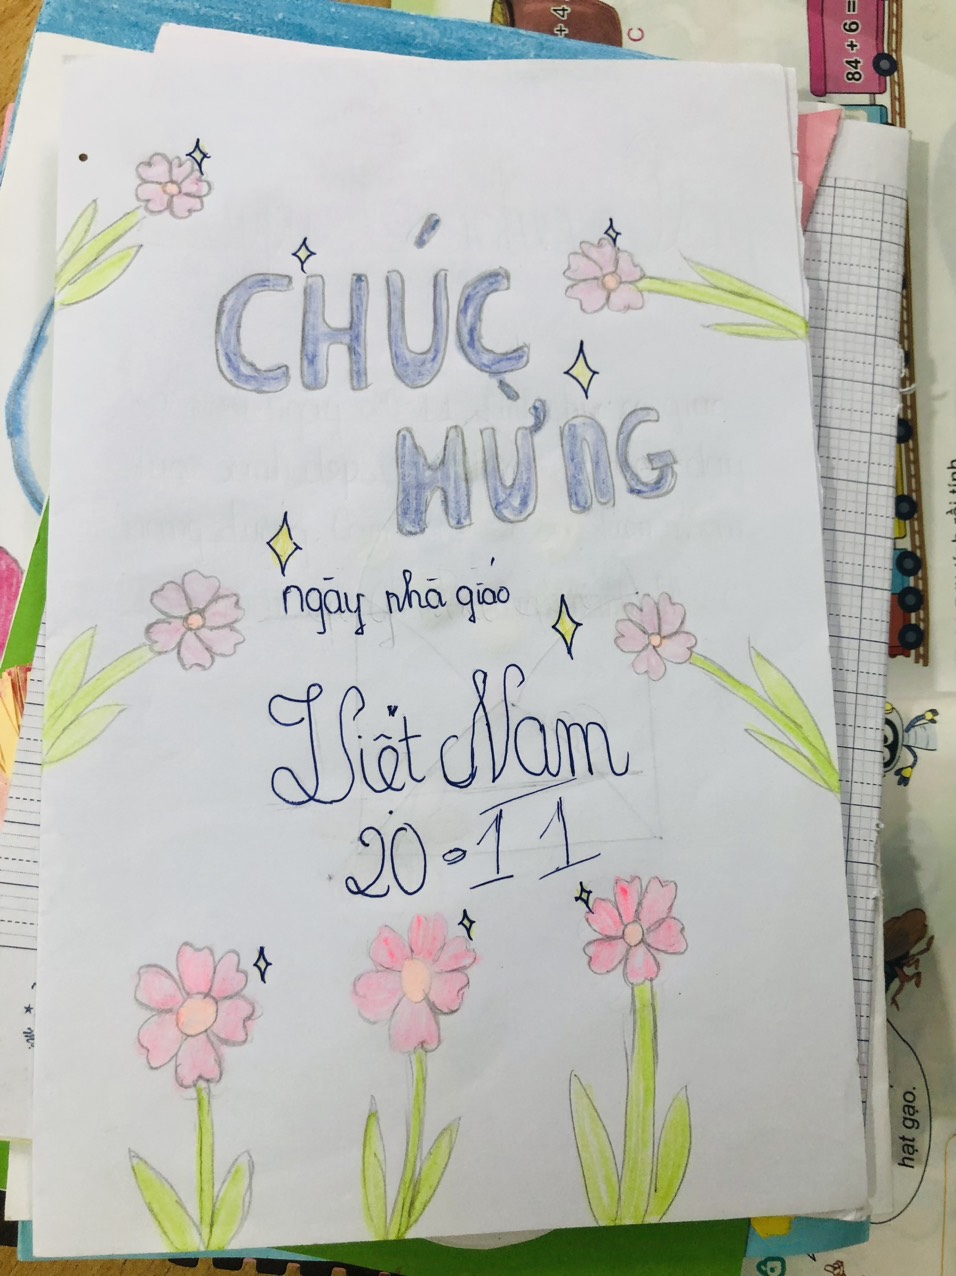 CHÚC
MỪNG
ngày nhà giáo
Việt Nam
20-11
84 + 6 =
+ 4
C
hạt gạo.